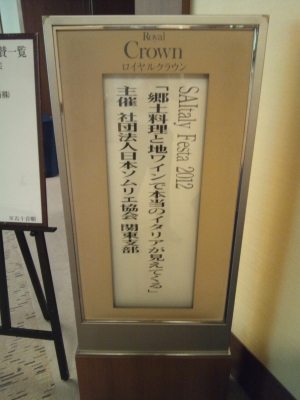 Royal
Crown
ロイヤルクラウン
SAItaly Festa 2012
「郷土料理と地ワインで本当のイタリアが見えてくる」
主催 社団法人日本ソムリエ協会 関東支部
賛一覧